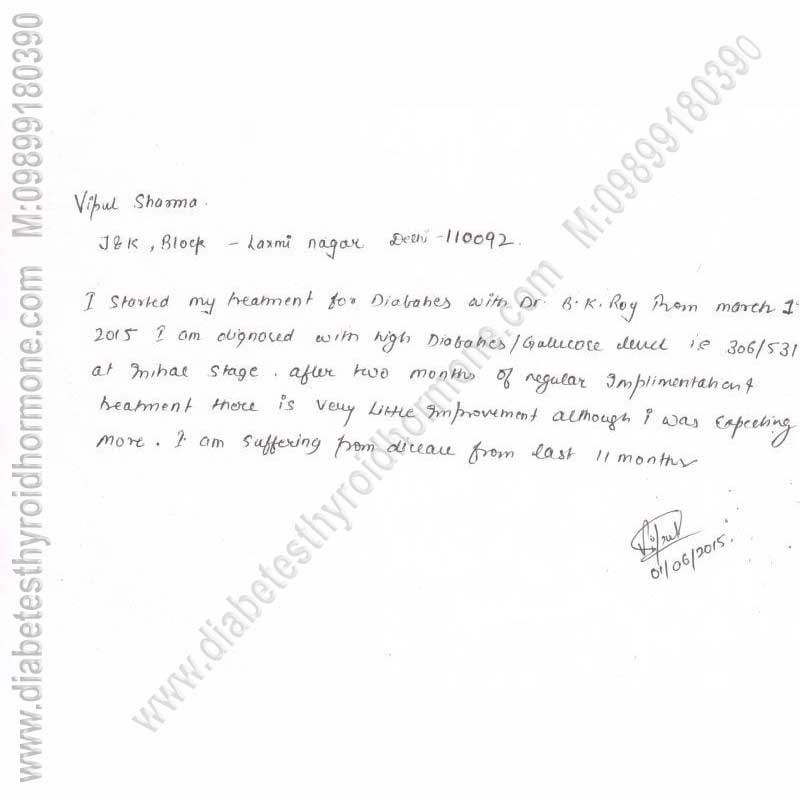 Vipul Sharma.
J&K, Block - Laxmi nagar Delhi-110092.
I started my treatment for Diabates with Dr. B.K. Roy from march 1
2015 I am dignosed with high Diabates/Gallucose level is 306/531
at initial stage. after two months of regular implimentation &
treatment there is very little improvement although i was expecting
more. I am suffering from disease from last 11 months
Vipul
01/06/2015.
www.diabetesthyroidhormone.com M:09899180390
www.diabetesthyroidhormone.com M:09899180390